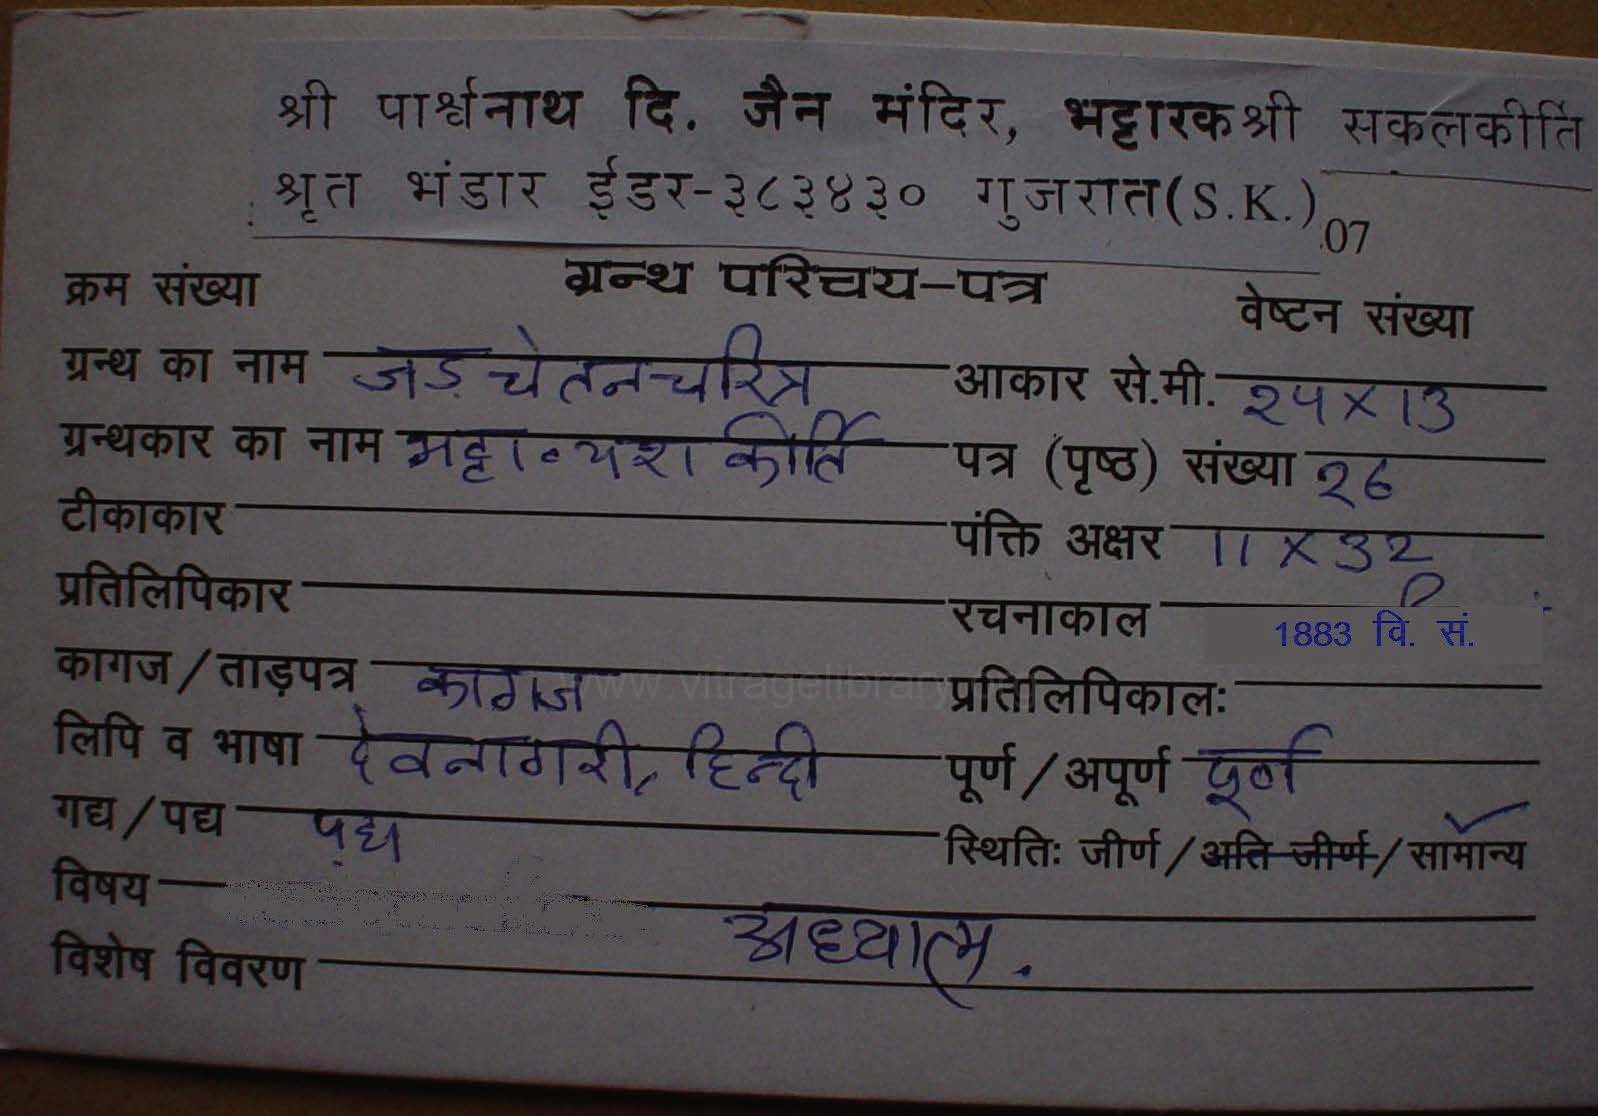 श्री पार्श्वनाथ दि. जैन मंदिर, भट्टारकश्री सकलकीर्ति
श्रृत भंडार ईडर-३८३४३० गुजरात(S.K.) 07
क्रम संख्या ग्रन्थ परिचय-पत्र वेष्टन संख्या
ग्रन्थ का नाम जड़ चेतनचरित्र आकार से.मी. २५x13
ग्रन्थकार का नाम भट्टा० यश कीर्ति पत्र (पृष्ठ) संख्या २6
टीकाकार पंक्ति अक्षर 11x3२
प्रतिलिपिकार रचनाकाल 1883 वि. सं.
कागज/ताड़पत्र कागज प्रतिलिपिकालः
लिपि व भाषा देवनागरी, हिन्दी पूर्ण/अपूर्ण पूर्ण
गद्य/पद्य पद्य स्थितिः जीर्ण/अति जीर्ण/सामान्य
विषय अध्यात्म.
विशेष विवरण